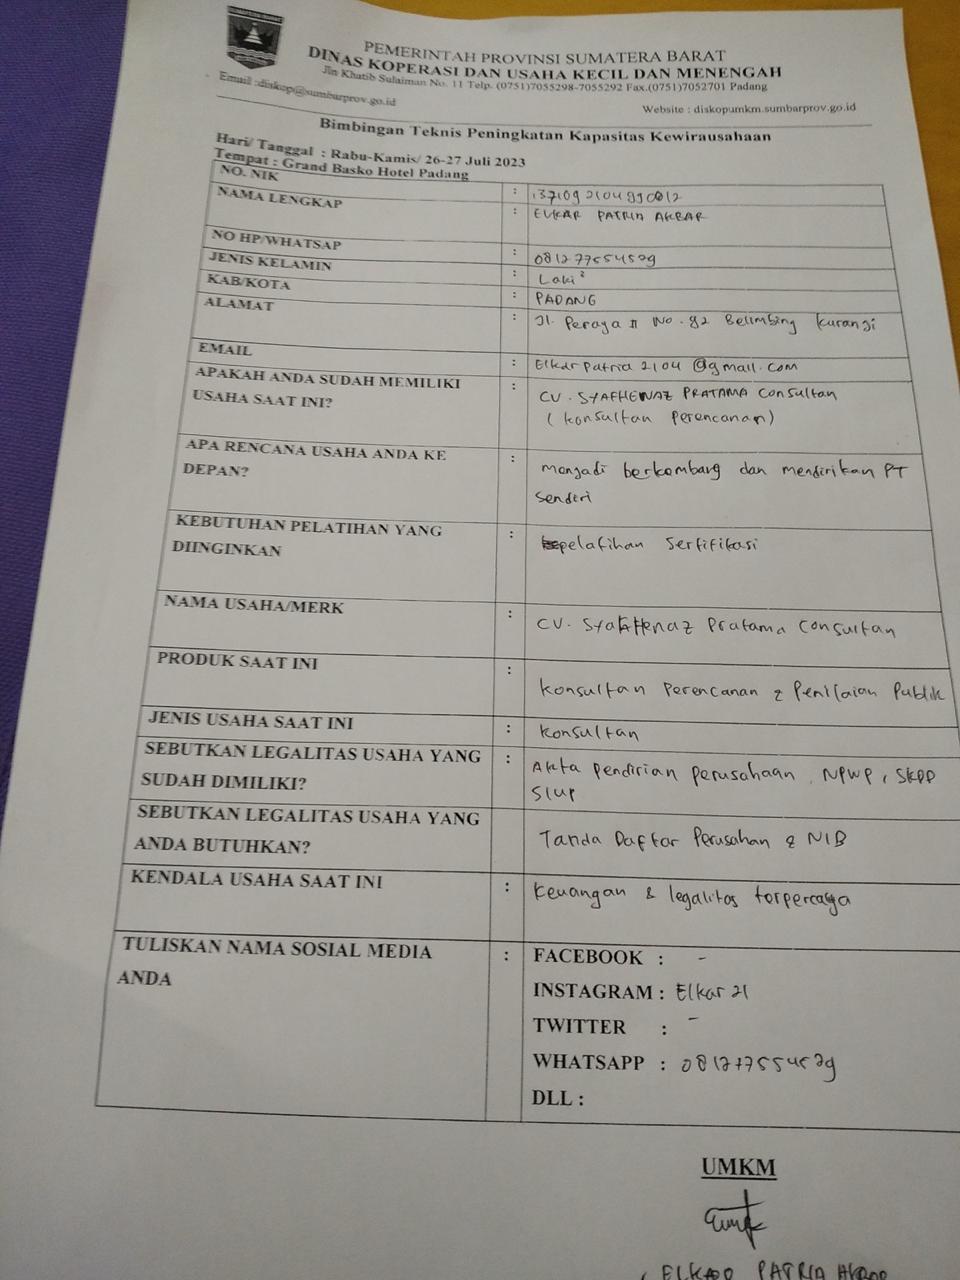 PEMERINTAH PROVINSI SUMATERA BARAT
DINAS KOPERASI DAN USAHA KECIL DAN MENENGAH
Jln Khatib Sulaiman No. 11 Telp. (0751)7055298-7055292 Fax.(0751)7052701 Padang
Email :diskop@sumbarprov.go.id
Website : diskopumkm.sumbarprov.go.id
Bimbingan Teknis Peningkatan Kapasitas Kewirausahaan
Hari/ Tanggal : Rabu-Kamis/ 26-27 Juli 2023
Tempat : Grand Basko Hotel Padang
NO. NIK : 1371092104990012
NAMA LENGKAP : ELKAR PATRIA AKBAR
NO HP/WHATSAP : 081277554529
JENIS KELAMIN : Laki²
KAB/KOTA : PADANG
ALAMAT : Jl. Peraya II No. 82 Belimbing Kuranji
EMAIL : Elkarpatria2104@gmail.com
APAKAH ANDA SUDAH MEMILIKI : CV. SYAFHENAZ PRATAMA Consultan
USAHA SAAT INI? (Konsultan Perencanan)
APA RENCANA USAHA ANDA KE : menjadi berkembang dan mendirikan PT
DEPAN? Sendiri
KEBUTUHAN PELATIHAN YANG : pelatihan Sertifikasi
DIINGINKAN
NAMA USAHA/MERK : CV. SyafHenaz Pratama Consultan
PRODUK SAAT INI : Konsultan Perencanan & Penilaian Publik
JENIS USAHA SAAT INI : Konsultan
SEBUTKAN LEGALITAS USAHA YANG : Akta pendirian perusahaan, NPWP, SKPP
SUDAH DIMILIKI? SIUP
SEBUTKAN LEGALITAS USAHA YANG
ANDA BUTUHKAN? Tanda Daftar Perusahan & NIB
KENDALA USAHA SAAT INI : Keuangan & legalitas terpercaya
TULISKAN NAMA SOSIAL MEDIA : FACEBOOK : -
ANDA INSTAGRAM : Elkar21
TWITTER : -
WHATSAPP : 081277554529
DLL :
UMKM
ELKAR PATRIA AKBAR